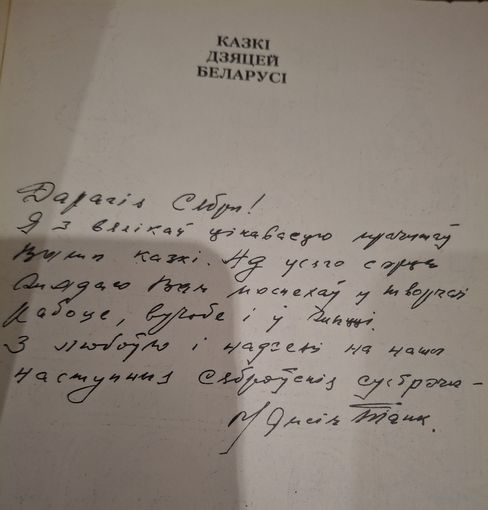 КАЗКІ
ДЗЯЦЕЙ
БЕЛАРУСІ
Дарагія Сябры!
Я з вялікай цікавасцю прачытаў
Вашы казкі. Ад усяго сэрца
Жадаю Вам поспехаў у творчай
рабоце, вучобе і ў жыцці.
З любоўю і надзеяй на нашы
наступныя сяброўскія сустрэчы –
Максім Танк.